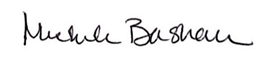 Michele Bashaw